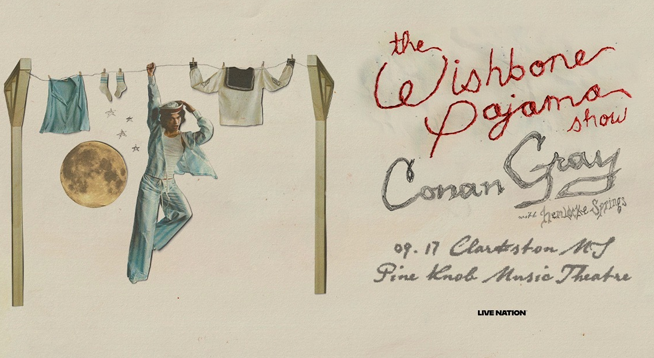 the
Wishbone
Pajama
show
Conan Gray
with Hemlocke Springs
09.17 Clarkston MI
Pine Knob Music Theatre
LIVE NATION